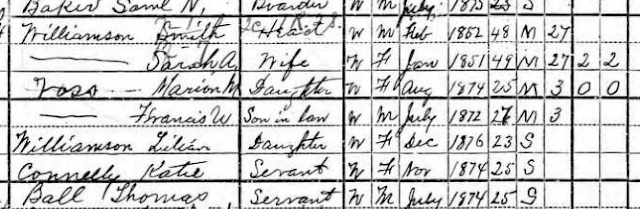 Baker Saml N, Boarder W M July 1875 25 S
Williamson Smith Head W M Feb 1852 48 M 27
—— Sarah A, Wife W F Jan 1851 49 M 27 2 2
Voss — Marion M Daughter W F Aug 1874 25 M 3 0 0
—— Francis W Son in law W M July 1872 27 M 3
Williamson Lilian Daughter W F Dec 1876 23 S
Connelly Katie Servant W F Nov 1874 25 S
Ball Thomas, Servant W M July 1874 25 S